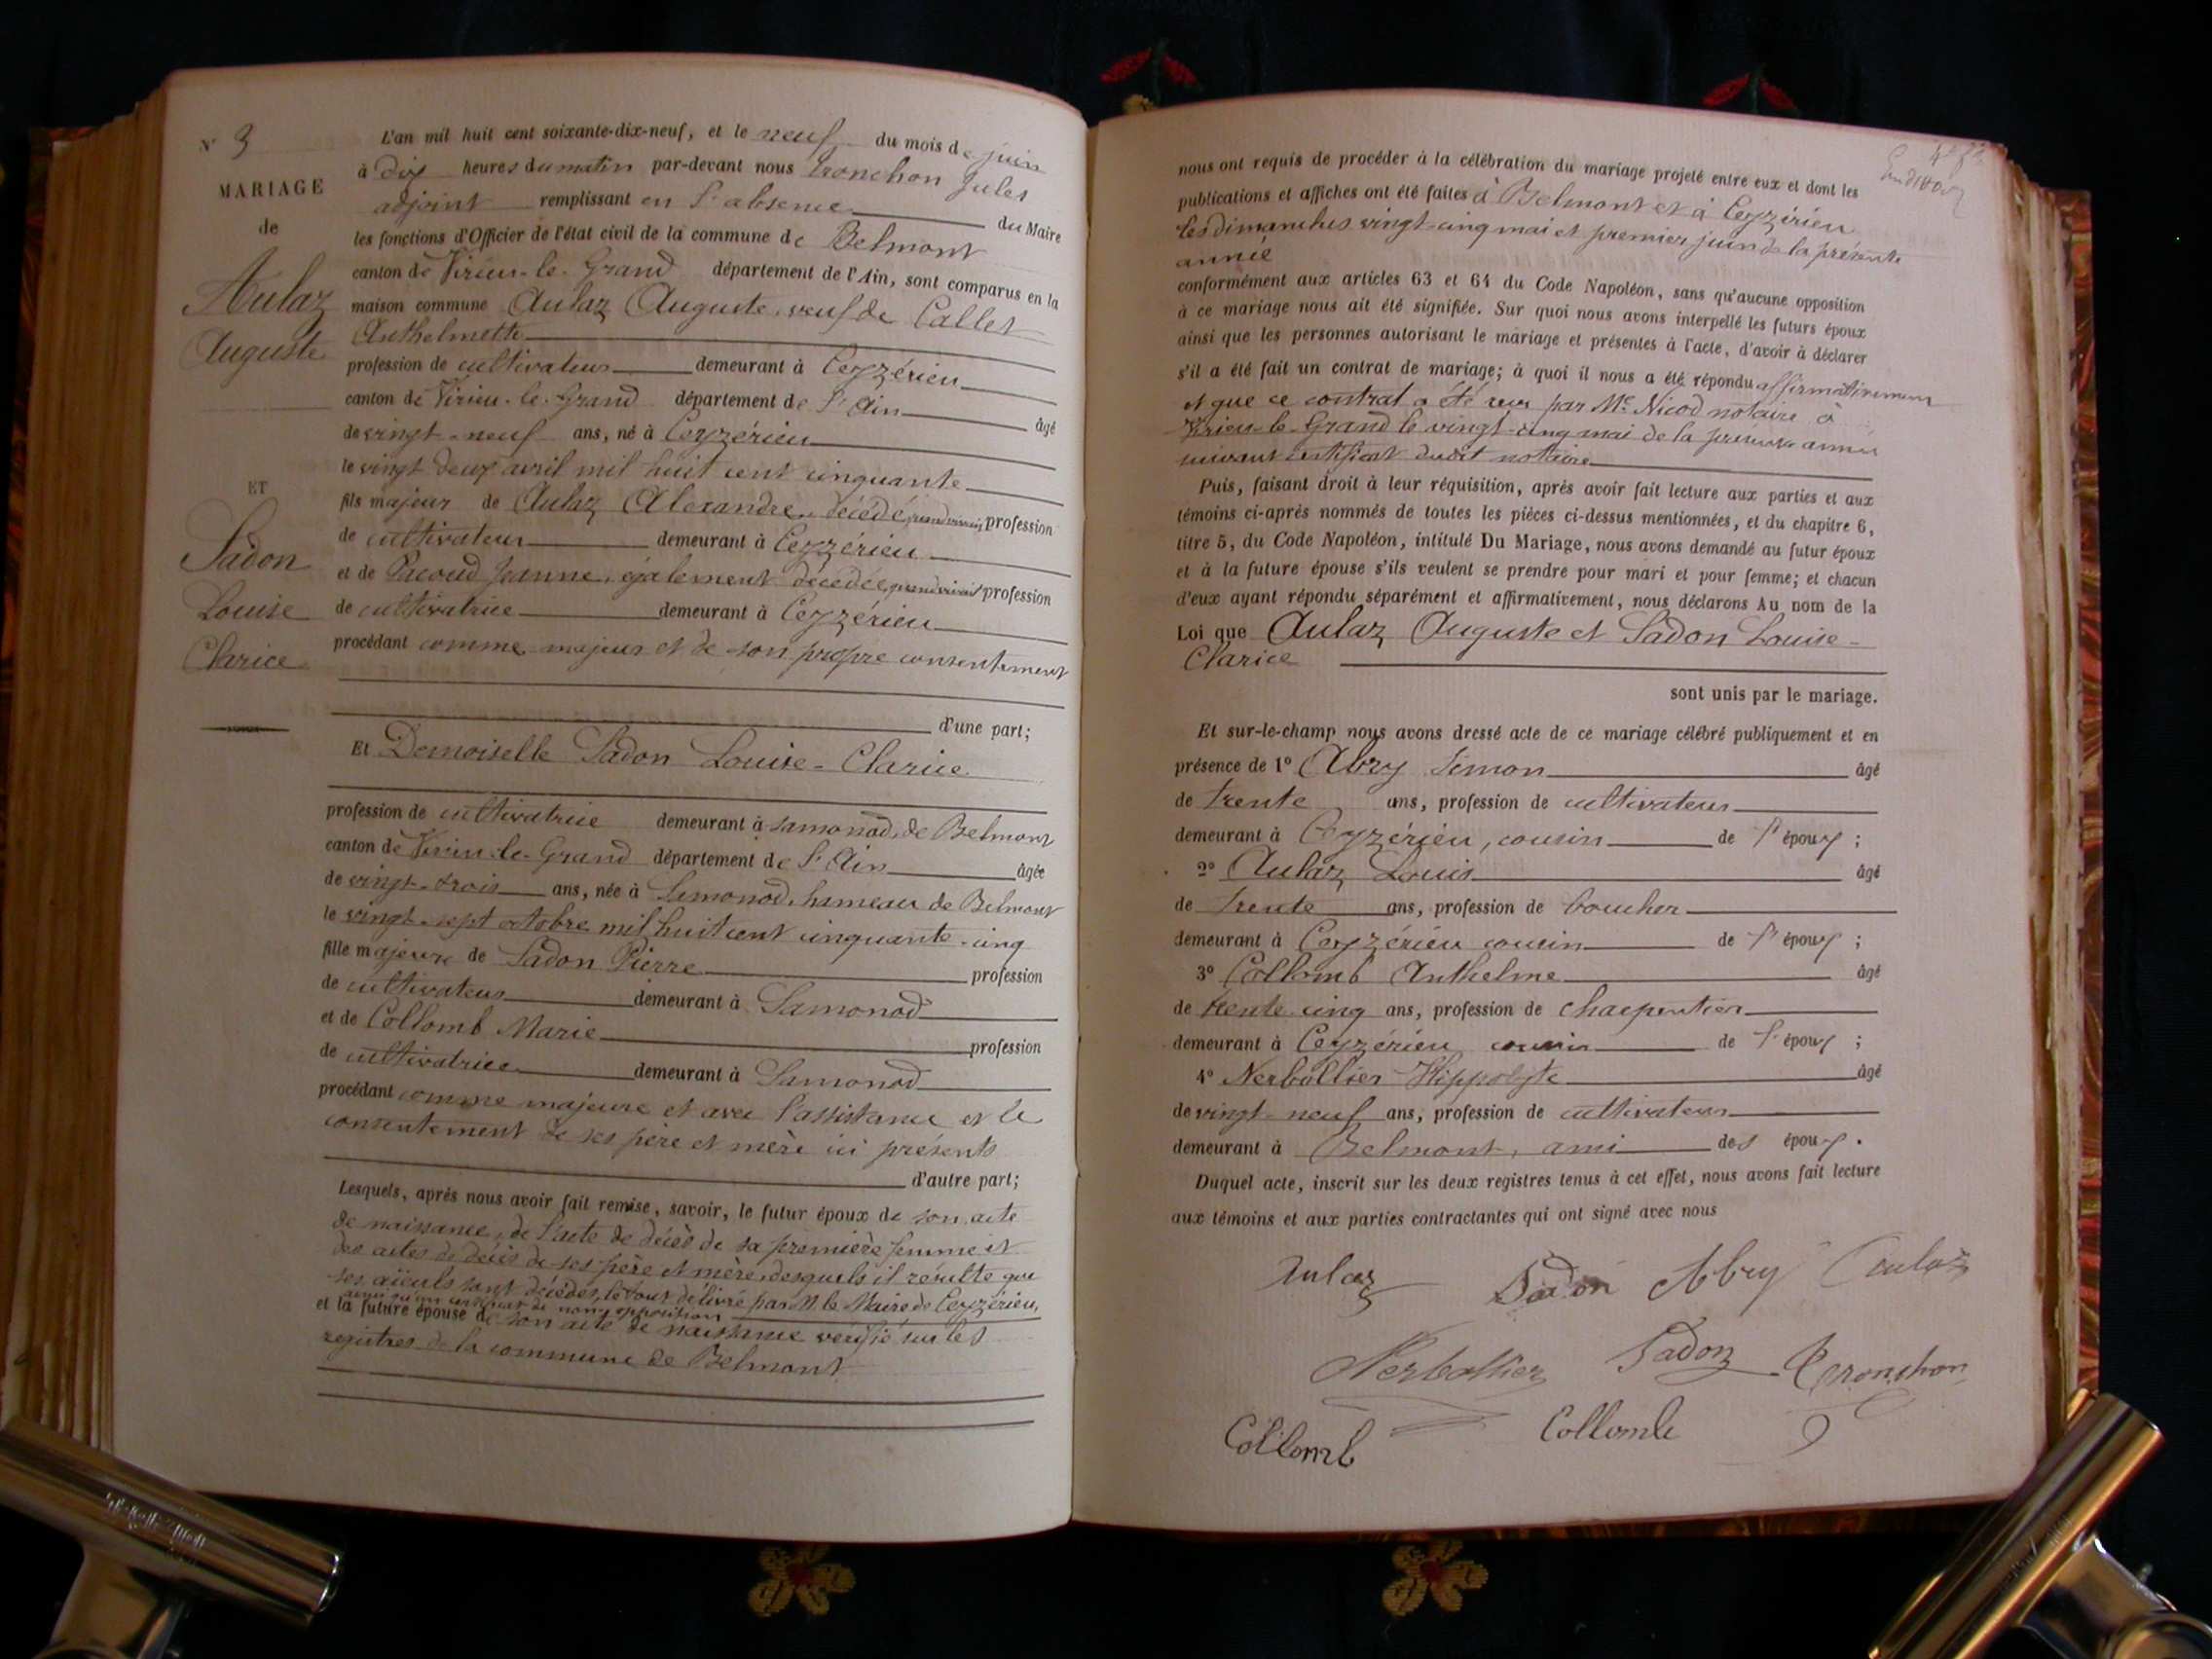 N° 3
MARIAGE
de
Aulaz
Auguste
ET
Sadon
Louise
Clarice
L'an mil huit cent soixante-dix-neuf, et le neuf du mois de juin
à dix heures du matin par-devant nous Tronchon Jules
adjoint remplissant en l'absence du Maire
les fonctions d'Officier de l'état civil de la commune de Belmont
canton de Virieu-le-Grand département de l'Ain, sont comparus en la
maison commune Aulaz Auguste, veuf de Callet
Anthelmette
profession de cultivateur demeurant à Ceyzérieu
canton de Virieu-le-Grand département de l'Ain âgé
de vingt-neuf ans, né à Ceyzérieu
le vingt deux avril mil huit cent cinquante
fils majeur de Aulaz Alexandre, décédé, quand vivait, profession
de cultivateur demeurant à Ceyzérieu
et de Pacoud Jeanne, également décédée, quand vivait profession
de cultivatrice demeurant à Ceyzérieu
procédant comme majeur et de son propre consentement
d'une part;
Et Demoiselle Sadon Louise-Clarice
profession de cultivatrice demeurant à Samonod, de Belmont
canton de Virieu-le-Grand département de l'Ain âgée
de vingt-trois ans, née à Samonod, hameau de Belmont
le vingt-sept octobre mil huit cent cinquante-cinq
fille majeure de Sadon Pierre profession
de cultivateur demeurant à Samonod
et de Collomb Marie profession
de cultivatrice demeurant à Samonod
procédant comme majeure et avec l'assistance et le
consentement de ses père et mère ici présents
d'autre part;
Lesquels, après nous avoir fait remise, savoir, le futur époux de son acte
de naissance, de l'acte de décès de sa première femme et
des actes de décès de ses père et mère, desquels il résulte que
ses aïeuls sont décédés, le tout délivré par M. le Maire de Ceyzérieu,
ainsi qu'un certificat de non opposition
et la future épouse de son acte de naissance vérifié sur les
registres de la commune de Belmont
nous ont requis de procéder à la célébration du mariage projeté entre eux et dont les
publications et affiches ont été faites à Belmont et à Ceyzérieu
les dimanches vingt-cinq mai et premier juin de la présente
année
conformément aux articles 63 et 64 du Code Napoléon, sans qu'aucune opposition
à ce mariage nous ait été signifiée. Sur quoi nous avons interpellé les futurs époux
ainsi que les personnes autorisant le mariage et présentes à l'acte, d'avoir à déclarer
s'il a été fait un contrat de mariage; à quoi il nous a été répondu affirmativement
et que ce contrat a été reçu par Me Nicod notaire à
Virieu-le-Grand le vingt-cinq mai de la présente année
suivant certificat dudit notaire
Puis, faisant droit à leur réquisition, après avoir fait lecture aux parties et aux
témoins ci-après nommés de toutes les pièces ci-dessus mentionnées, et du chapitre 6,
titre 5, du Code Napoléon, intitulé Du Mariage, nous avons demandé au futur époux
et à la future épouse s'ils veulent se prendre pour mari et pour femme; et chacun
d'eux ayant répondu séparément et affirmativement, nous déclarons Au nom de la
Loi que Aulaz Auguste et Sadon Louise-
Clarice
sont unis par le mariage.
Et sur-le-champ nous avons dressé acte de ce mariage célébré publiquement et en
présence de 1° Abry Simon âgé
de trente ans, profession de cultivateur
demeurant à Ceyzérieu, cousin de l'époux ;
2° Aulaz Louis âgé
de trente ans, profession de boucher
demeurant à Ceyzérieu cousin de l'époux ;
3° Collomb Anthelme âgé
de trente cinq ans, profession de charpentier
demeurant à Ceyzérieu cousin de l'époux ;
4° Nerbollier Hippolyte âgé
de vingt-neuf ans, profession de cultivateur
demeurant à Belmont, ami des époux.
Duquel acte, inscrit sur les deux registres tenus à cet effet, nous avons fait lecture
aux témoins et aux parties contractantes qui ont signé avec nous
Aulaz Sadon Abry Aulaz
Nerbollier Sadon Tronchon
Collomb Collomb